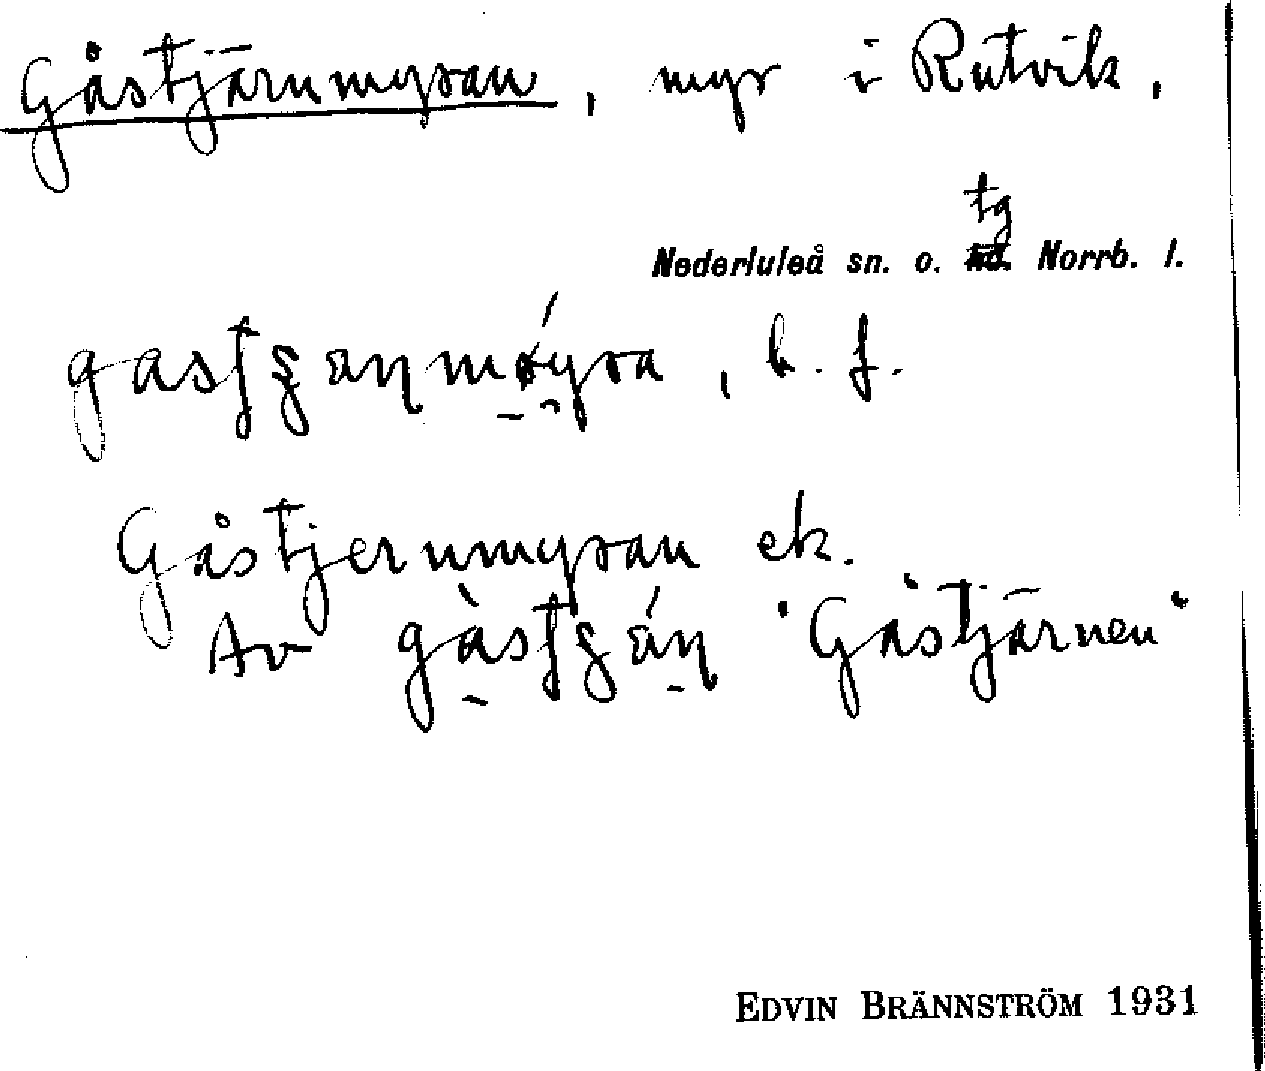 Gåstjärnmyran, myr i Rutvik,
tg
Nederluleå sn. o. hd. Norrb. l.
b. f.
Gåstjernmyran ek.
Av "Gåstjärnen"
EDVIN BRÄNNSTRÖM 1931